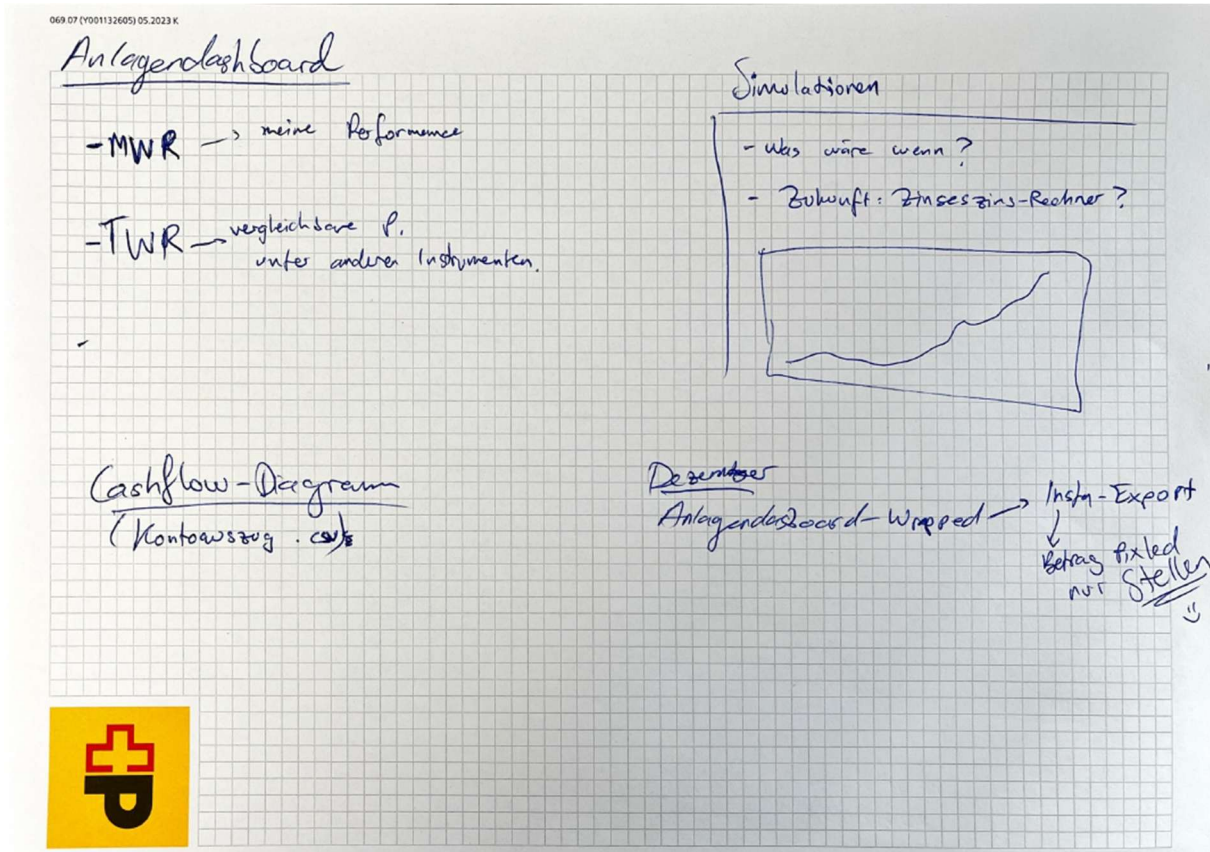 069.07 (Y001132605) 05.2023 K
Anlagendashboard
- MWR -> meine Performance
- TWR - vergleichbare P.
unter anderen Instrumenten.
Simulationen
- Was wäre wenn?
- Zukunft: Zinseszins-Rechner?
Cashflow-Diagramm
(Kontoauszug .csv)
Dezember
Anlagendasboard-Wrapped -> Insta-Export
Betrag pixled
nur Stellen
P